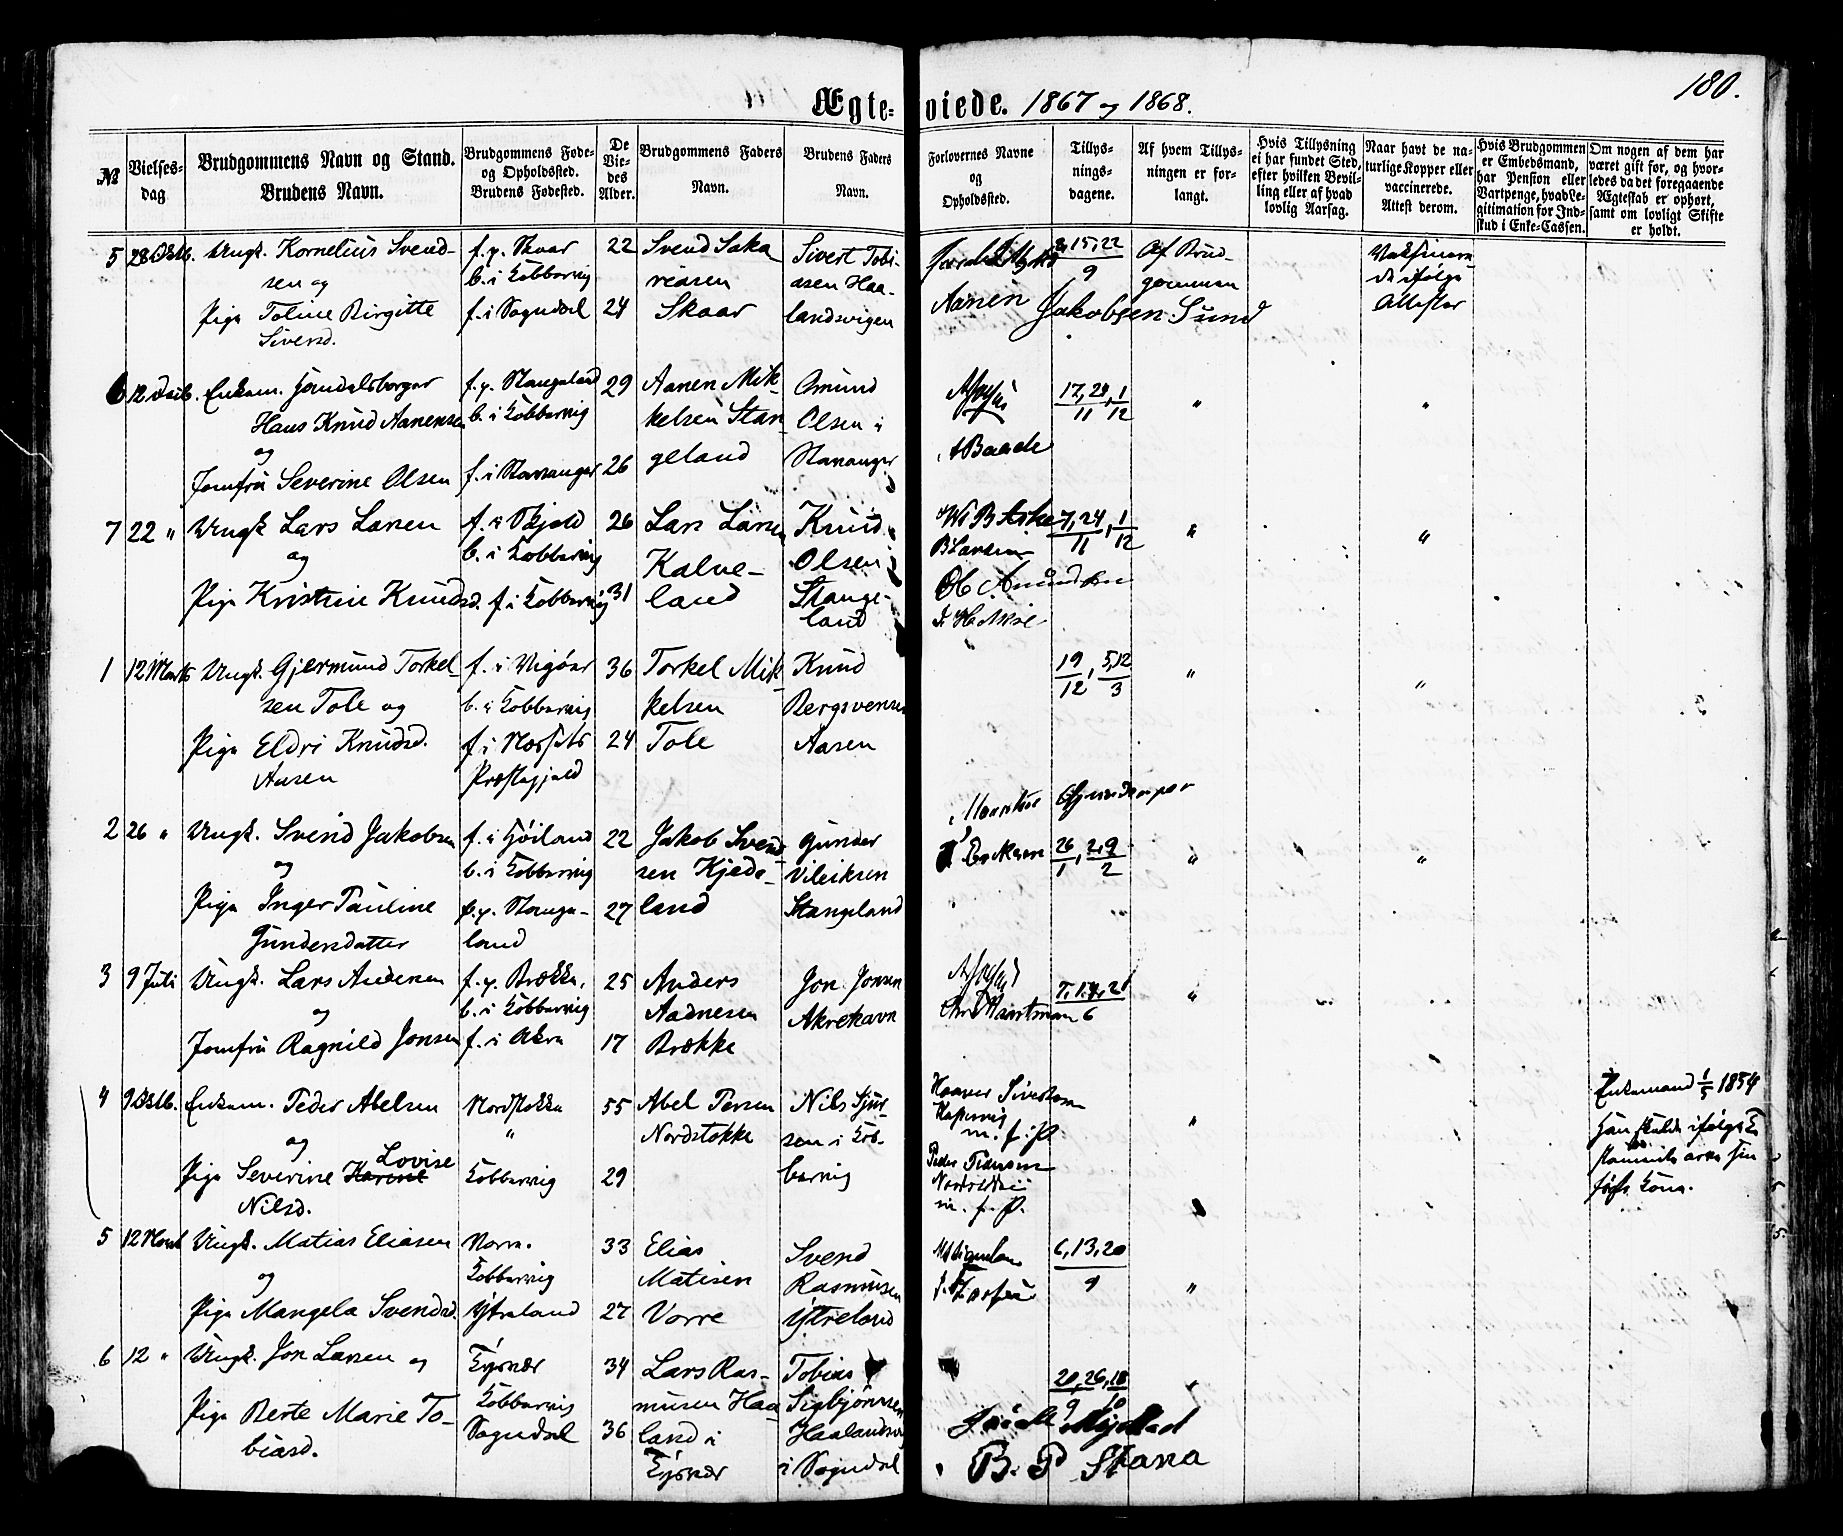 180.
Ægteviede. 1867 og 1868.
№
Vielses-
dag
Brudgommens Navn og Stand.
Brudens Navn.
Brudgommens Føde-
og Opholdssted.
Brudens Fødested.
De
Vie-
des
Alder.
Brudgommens Faders
Navn.
Brudens Faders
Navn.
Forlovernes Navne
og
Opholdssted.
Tillys-
nings-
dagene.
Af hvem Tillys-
ningen er for-
langt.
Hvis Tillysning
ei har fundet Sted,
efter hvilken Bevil-
ling eller af hvad
lovlig Aarsag.
Naar havt de na-
turlige Kopper eller
vaccinerede.
Attest derom.
Hvis Brudgommen
er Embedsmand,
har Pension eller
Vartpenge, hvad Le-
gitimation for Ind-
skud i Enke-Cassen.
Om nogen af dem har
været gift før, og hvor-
ledes da det foregaaende
Ægteskab er ophørt,
samt om lovligt Skifte
er holdt.
5 Ungk. Kornelius Svend-
sen og
Pige Toline Birgitte
Sivertsd.
f. p. Skaar
b. i Kobbervig
f. i Sogndal
22
24
Svend Saka
riasen
Skaar
Sivert Tobi-
asen Haa-
landsvigen
Aanen Jakobsen Sund
8, 15, 22
9
Af Brud-
gommen
Vaksinere
de ifølge
Attester
6 12 Enkem. Handelsborger
Hans Knud Aanensen
og
Jomfru Severine Olsen
f. p. Stangeland
b. i Kobbervig
f. i Stavanger
29
26
Aanen Mik
kelsen Stan
geland
Omund
Olsen i
Stavanger
A Baade
17, 24, 1
11 12
"
"
7 22 " Ungk Lars Larsen
og
Pige Kristine Knudsd.
f. i Skjold
b. i Kobbervig
f. i Kobbervig
26
31
Lars Larsen
Kalve-
land
Knud
Olsen
Stange-
land
B Larsen
7, 24, 1
11 12
"
"
1 12 Marts Ungk. Gjermund Torkel-
sen Tole og
Pige Eldri Knudsd.
Aasen
f. i Vigør
b. i Kobbervig
Præstegjeld
36
24
Torkel Mik
kelsen
Tole
Knud
Bergsvensen
Aasen
19, 5, 12
12 3
"
"
2 26 " Ungk. Svend Jakobsen
og
Pige Inger Pauline
Gundersdatter
f. i Høiland
b. i Kobbervig
f. p. Stange-
land
22
27
Jakob Svend-
sen Kjede-
land
Gunder
Vileiksen
Stangeland
26, 2, 9
1 2
"
"
3 9 Juli Ungk. Lars Andersen
og
Jomfru Ragnild Jonsen
f. p. Brekke,
b. i Kobbervig
f. i Akra
25
17
Anders
Aadnesen
Brække
Jon Jonsen
Akrehavn
7, 14, 21
6
"
4 9 Oktb. Enkem. Peder Abelsen
og
Pige Severine Karine Lovise
Nilsd.
Nordstokke
"
Kobbervig
55
29
Abel Persen
Nordstokke
Nils Sjur-
sen i Kob-
bervig
m. f. P.
Peder Pedersen
m. f. P.
"
Enkemand 1/5 1854
5 12 Ungk. Matias Eliasen
og
Pige Mangela Svendsd.
Vorre.
Kobbervig
Ytreland
33
27
Elias
Matisen
Vorre
Svend
Rasmusen
Ytreland
6, 13, 20
9
"
6 12 " Ungk. Jon Larsen og
Pige Berte Marie To-
biasd.
Eysnær
Kobbervig
Sogndal
34
36
Lars Ras-
musen Haa
land i
Eysnær
Tobias
Sigbjørnsen
Haalandsvig
i Sogndal
20, 26, 18
9 10
"
B. P Stana